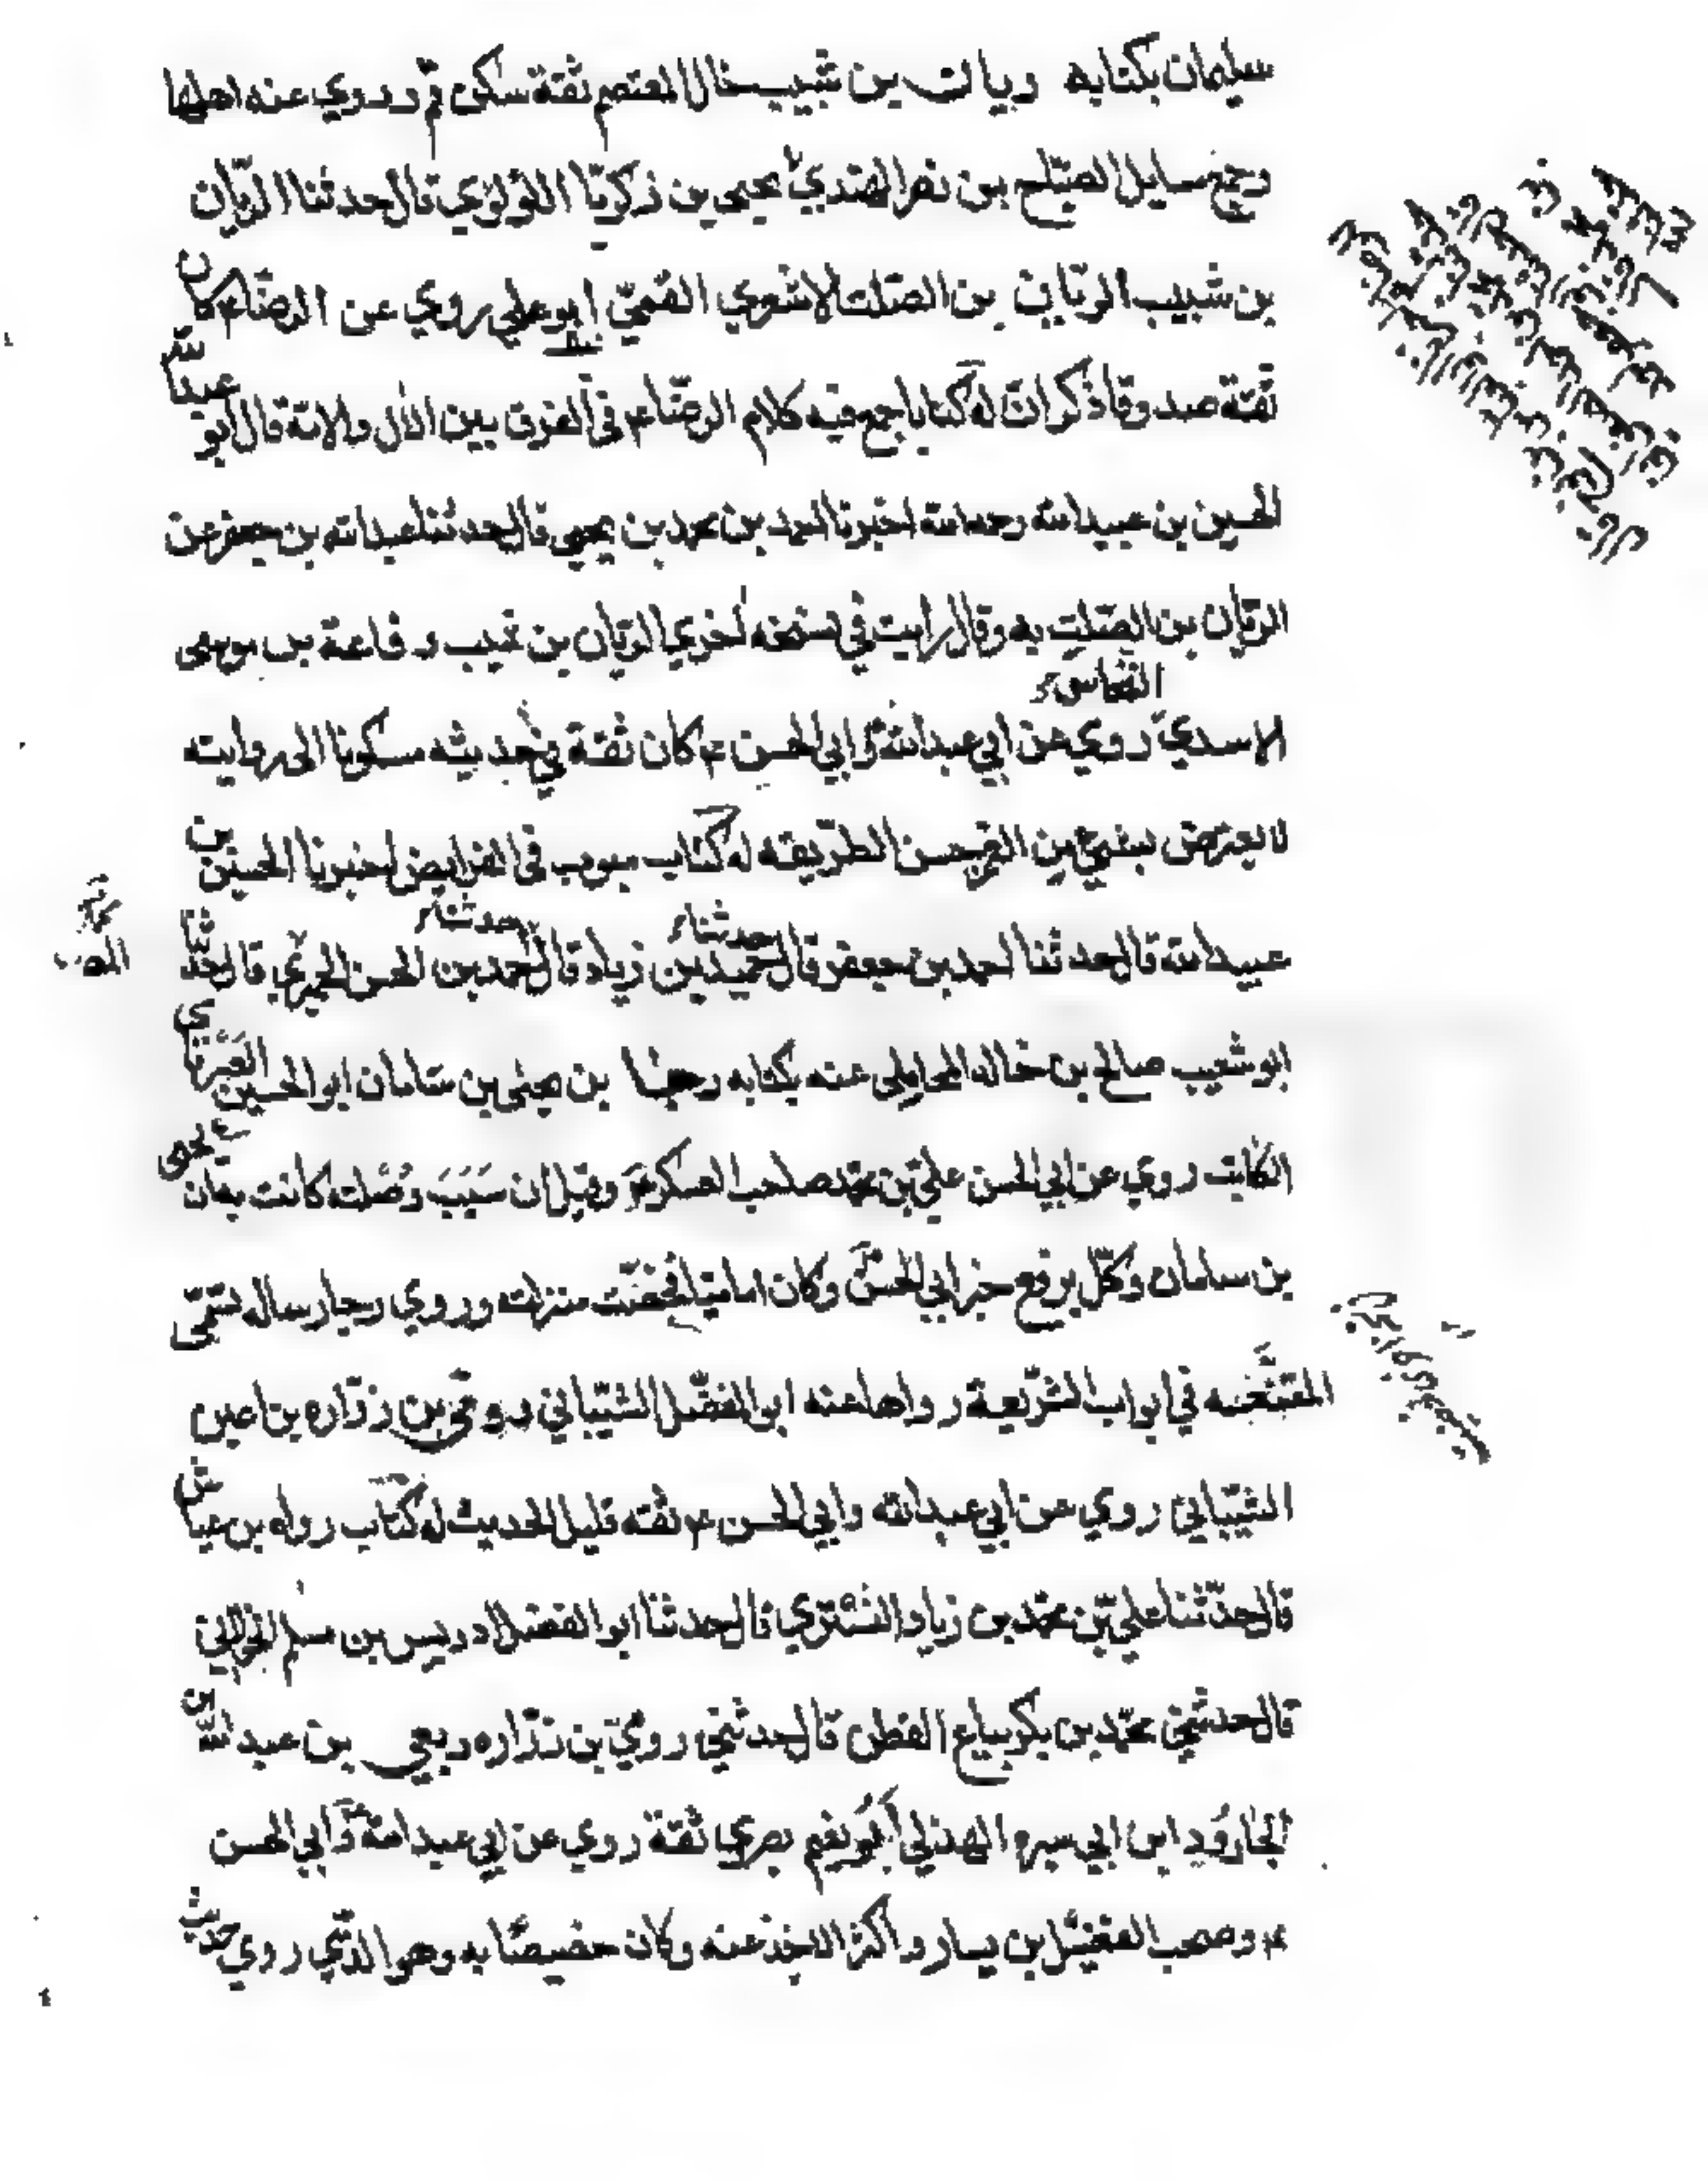 سليمان بكتابه ريان بن شبيب خال المعتصم ثقة سكن قم وروي عنه اهلها
وجمع مسايل الصباح بن نصر الهندي يحيى بن زكريا اللؤلؤي قال حدثنا الريان
بن شبيب الريان بن الصلت الاشعري القمي ابو علي روي عن الرضاء كان
ثقة صدوقا ذكر ان له كتابا جمع فيه كلام الرضاء في الفرق بين الال والامة قال ابو عبدالله
الحسين بن عبيدالله رحمه الله اخبرنا احمد بن محمد بن يحيى قال حدثنا عبدالله بن جعفر عن
الريان بن الصلت به وقال رايت في نسخه اخري الريان بن شبيب رفاعة بن موسى
النخاس
الاسدي روي عن ابي عبدالله وابي الحسن ء كان ثقة في حديثه مسكونا الى روايته
لا يعترض بشيء من الغمز حسن الطريقه له كتاب مبوب في الفرايض اخبرنا الحسين بن
عبيدالله قال حدثنا احمد بن جعفر قال حدثنا حميد بن زياد قال حدثنا احمد بن الحسن البصري قال حدثنا
ابو شعيب صالح بن خالد المحاملي عنه بكتابه رجاء بن يحيى بن سامان ابو الحسين العبرتاي
الكاتب روي عن ابي الحسن علي بن محمد صاحب العسكر ء وقيل ان سبب وصلته كانت به ان يحيى
بن سامان وكل برفع خبر ابي الحسن وكان اماميا فحضت منزلته وروي رجا رساله تسمى
المقنعه في ابواب الشريعة رواها عنه ابو المفضل الشيباني رومي بن زراره بن اعين
الشيباني روي عن ابي عبدالله وابي الحسن ء ثقه قليل الحديث له كتاب رواه بن عياش
قال حدثنا علي بن محمد بن زياد التستري قال حدثنا ابو الفضل ادريس بن مسلم الجواني
قال حدثني محمد بن بكر بياع القطن قال حدثني رومي بن زراره ربعي بن عبدالله بن
الجارود ابن ابي سبره الهذلي ابو نعيم بصري ثقة روي عن ابي عبدالله وابي الحسن
ء وصحب الفضيل بن يسار واكثر الاخذ عنه وكان خصيصا به وهو الذي روي حديث